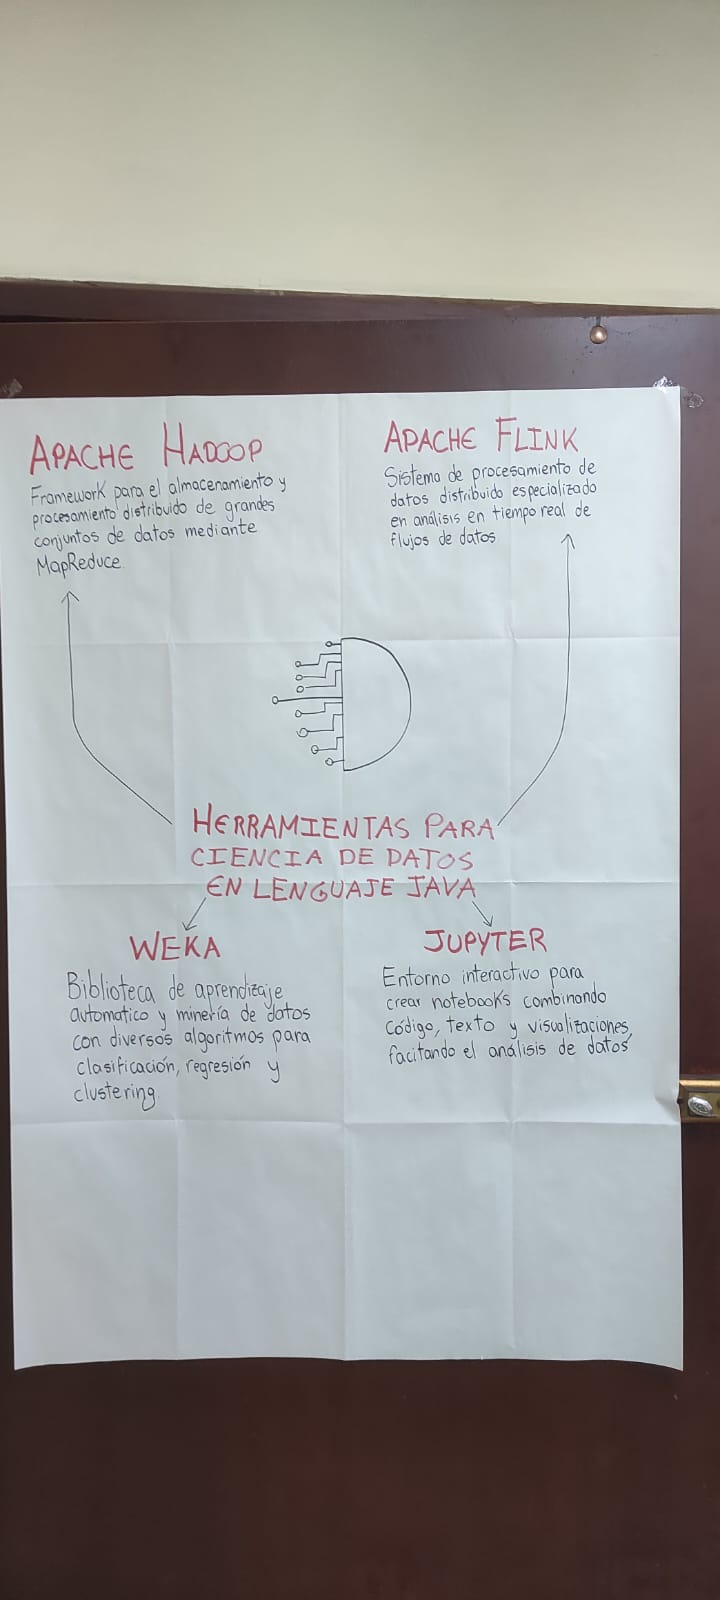 APACHE HADOOP
Framework para el almacenamiento y
procesamiento distribuido de grandes
conjuntos de datos mediante
MapReduce.
APACHE FLINK
Sistema de procesamiento de
datos distribuido especializado
en análisis en tiempo real de
flujos de datos
HERRAMIENTAS PARA
CIENCIA DE DATOS
EN LENGUAJE JAVA
WEKA
Biblioteca de aprendizaje
automatico y minería de datos
con diversos algoritmos para
clasificación, regresión y
clustering.
JUPYTER
Entorno interactivo para
crear notebooks combinando
código, texto y visualizaciones,
facitando el análisis de datos